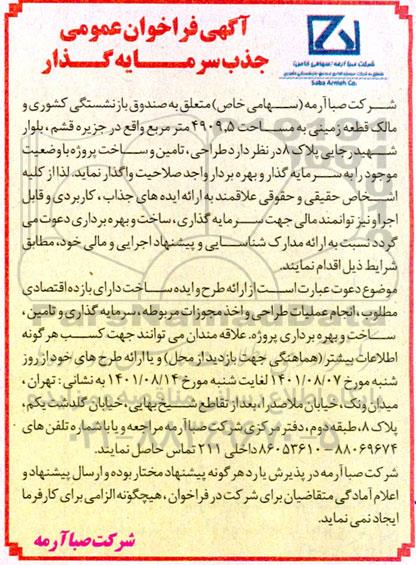 آگهی فراخوان عمومی
جذب سرمایه گذار
شرکت صبا آرمه (سهامی خاص)
Saba Armeh Co.
شرکت صبا آرمه (سهامی خاص) متعلق به صندوق بازنشستگی کشوری و
مالک قطعه زمینی به مساحت ۴۹۰۹,۵ متر مربع واقع در جزیره قشم ، بلوار
شهید رجایی پلاک ۸ در نظر دارد طراحی ، تامین و ساخت پروژه با وضعیت
موجود را به سرمایه گذار و بهره بردار واجد صلاحیت واگذار نماید. لذا از کلیه
اشخاص حقیقی و حقوقی علاقمند به ارائه ایده های جذاب ، کاربردی و قابل
اجرا و نیز توانمند مالی جهت سرمایه گذاری ، ساخت و بهره برداری دعوت می
گردد نسبت به ارائه مدارک شناسایی و پیشنهاد اجرایی و مالی خود، مطابق
شرایط ذیل اقدام نمایند.
موضوع دعوت عبارت است از ارائه طرح و ایده ساخت دارای بازده اقتصادی
مطلوب ، انجام عملیات طراحی و اخذ مجوزات مربوطه ، سرمایه گذاری و تامین ،
ساخت و بهره برداری پروژه. علاقه مندان می توانند جهت کسب هر گونه
اطلاعات بیشتر (هماهنگی جهت بازدید از محل) و یا ارائه طرح های خود از روز
شنبه مورخ ۱۴۰۱/۰۸/۰۷ لغایت شنبه مورخ ۱۴۰۱/۰۸/۱۴ به نشانی : تهران ،
میدان ونک ، خیابان ملاصدرا، بعد از تقاطع شیخ بهایی، خیابان گلدشت یکم ,
پلاک ۸، طبقه دوم ، دفتر مرکزی شرکت صبا آرمه مراجعه و یا با شماره تلفن های
۸۸۰۶۹۶۷۴ - ۸۶۰۵۳۶۱۰ داخلی ۲۱۱ تماس حاصل نمایند.
شرکت صبا آرمه در پذیرش یا رد هر گونه پیشنهاد مختار بوده و ارسال پیشنهاد و
اعلام آمادگی متقاضیان برای شرکت در فراخوان ، هیچگونه الزامی برای کارفرما
ایجاد نمی نماید.
شرکت صبا آرمه